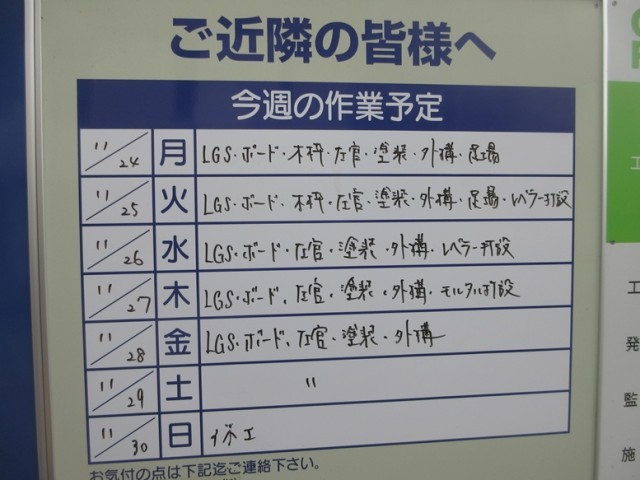 ご近隣の皆様へ
今週の作業予定
11/24 月 LGS・ボード・木枠・左官・塗装・外構・足場
11/25 火 LGS・ボード・木枠・左官・塗装・外構・足場・レベラー打設
11/26 水 LGS・ボード・左官・塗装・外構・レベラー打設
11/27 木 LGS・ボード、左官・塗装・外構・モルタル打設
11/28 金 LGS・ボード、左官・塗装・外構
11/29 土 〃
11/30 日 休工
お気付の点は下記迄ご連絡下さい。
工
工
発
監
施